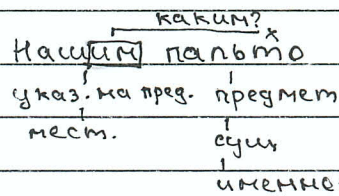 каким?
х
Нашим пальто
указ. на пред. предмет
мест. сущ
именно